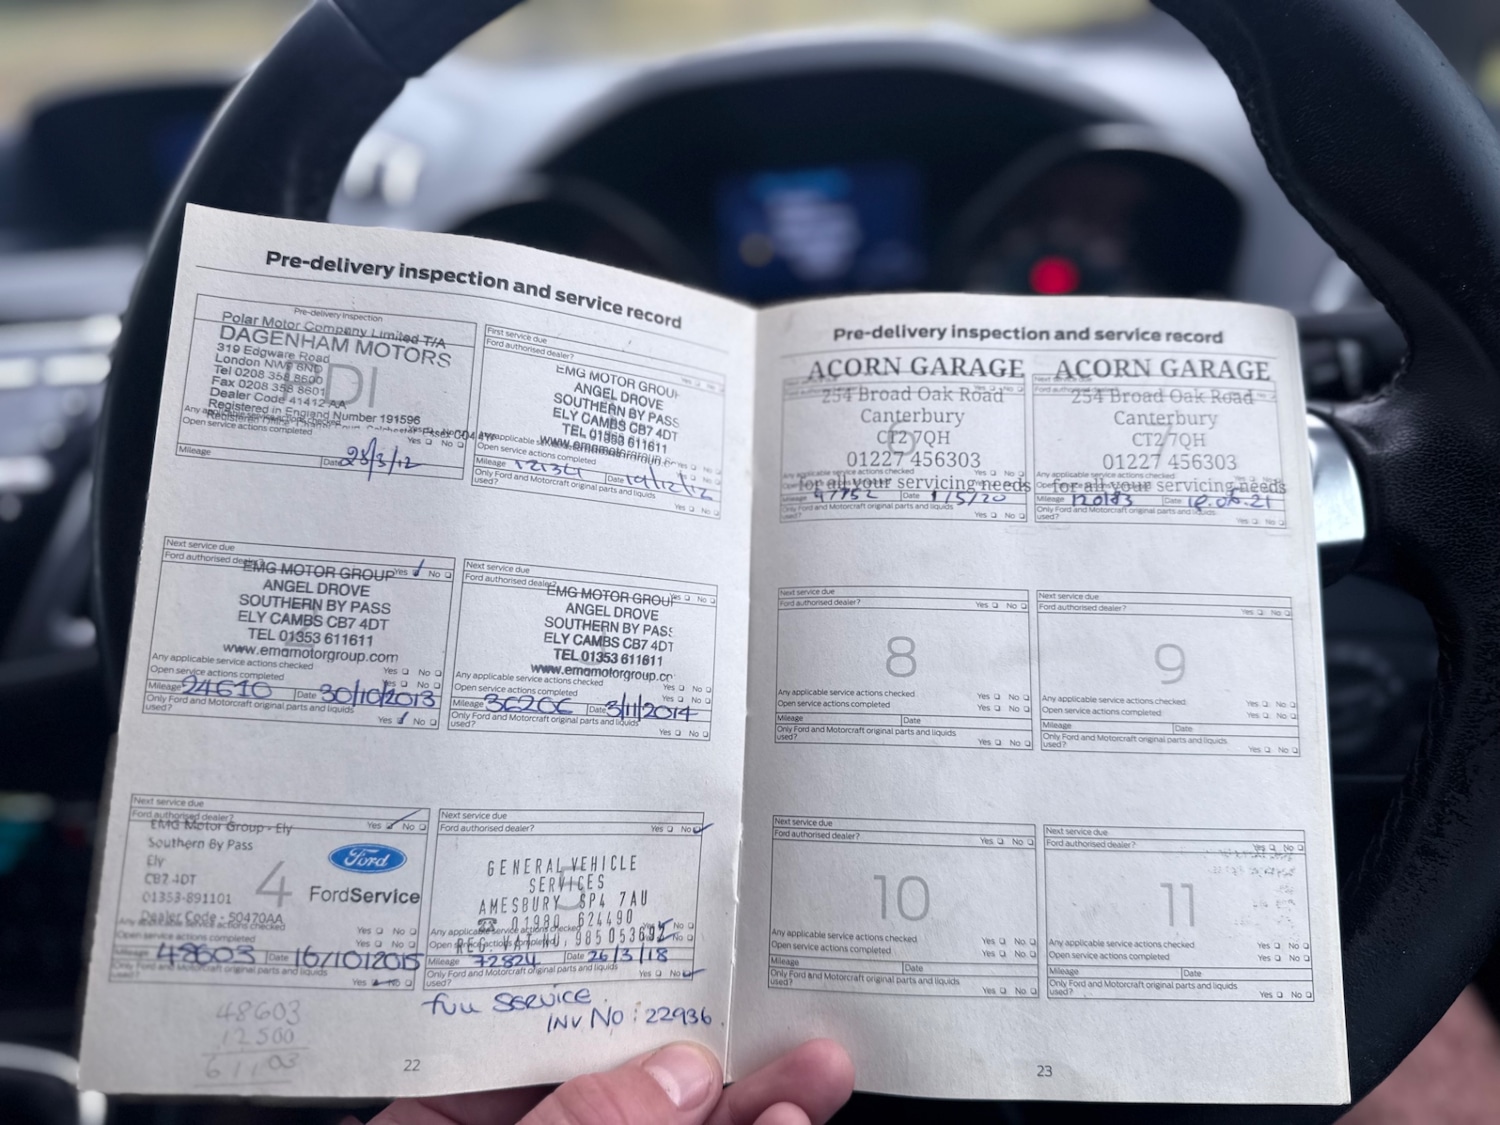 Pre-delivery inspection and service record
Pre-delivery inspection
Polar Motor Company Limited T/A
DAGENHAM MOTORS
319 Edgware Road
London NW9 6ND
Tel 0208 358 8600
Fax 0208 358 8601
Dealer Code 41412 AA
Registered in England Number 191596
Open service actions completed
Yes No
Mileage
Date 28/3/12
First service due
Ford authorised dealer?
EMG MOTOR GROUP
ANGEL DROVE
SOUTHERN BY PASS
ELY CAMBS CB7 4DT
TEL 01353 611611
Open service actions completed
Mileage
Date 19/12/12
Only Ford and Motorcraft original parts and liquids
used?
Yes No
Next service due
Ford authorised dealer?
Yes No
EMG MOTOR GROUP
ANGEL DROVE
SOUTHERN BY PASS
ELY CAMBS CB7 4DT
TEL 01353 611611
www.emgmotorgroup.com
Any applicable service actions checked
Yes No
Open service actions completed
Yes No
Mileage 24610
Date 30/10/2013
Only Ford and Motorcraft original parts and liquids
used?
Yes No
Next service due
Ford authorised dealer?
Yes No
EMG MOTOR GROU
ANGEL DROVE
SOUTHERN BY PASS
ELY CAMBS CB7 4DT
TEL 01353 611611
www.emgmotorgroup.co
Any applicable service actions checked
Yes No
Open service actions completed
Yes No
Mileage 36206
Date 3/11/2014
Only Ford and Motorcraft original parts and liquids
used?
Yes No
Next service due
Ford authorised dealer?
Yes No
EMG Motor Group - Ely
Southern By Pass
Ely
CB7 4DT
01353-891101
Dealer Code - 50470AA
4
Ford
FordService
Open service actions completed
Yes No
Yes No
Mileage 48603
Date 16/10/2015
Only Ford and Motorcraft original parts and liquids
used?
Yes No
48603
12500
61103
Next service due
Ford authorised dealer?
Yes No
GENERAL VEHICLE
SERVICES
AMESBURY SP4 7AU
01980 624490
REG. VAT No. 985 053692
5
Any applicable service actions checked
Yes No
Mileage 72824
Date 26/3/18
Only Ford and Motorcraft original parts and liquids
used?
Yes No
Full Service
INV No: 22936
22
Pre-delivery inspection and service record
ACORN GARAGE
254 Broad Oak Road
Canterbury
CT2 7QH
01227 456303
Any applicable service actions checked
for all your servicing needs
Mileage
Date 1/5/20
Only Ford and Motorcraft original parts and liquids
used?
Yes No
ACORN GARAGE
254 Broad Oak Road
Canterbury
CT2 7QH
01227 456303
Any applicable service actions checked
for all your servicing needs
Mileage
Date
Only Ford and Motorcraft original parts and liquids
used?
Yes No
Next service due
Ford authorised dealer?
Yes No
8
Any applicable service actions checked
Yes No
Open service actions completed
Yes No
Mileage
Date
Only Ford and Motorcraft original parts and liquids
used?
Yes No
Next service due
Ford authorised dealer?
Yes No
9
Any applicable service actions checked
Yes No
Open service actions completed
Yes No
Mileage
Date
Only Ford and Motorcraft original parts and liquids
used?
Yes No
Next service due
Ford authorised dealer?
Yes No
10
Any applicable service actions checked
Yes No
Open service actions completed
Yes No
Mileage
Date
Only Ford and Motorcraft original parts and liquids
used?
Yes No
Next service due
Ford authorised dealer?
Yes No
11
Any applicable service actions checked
Yes No
Open service actions completed
Yes No
Mileage
Date
Only Ford and Motorcraft original parts and liquids
used?
Yes No
23